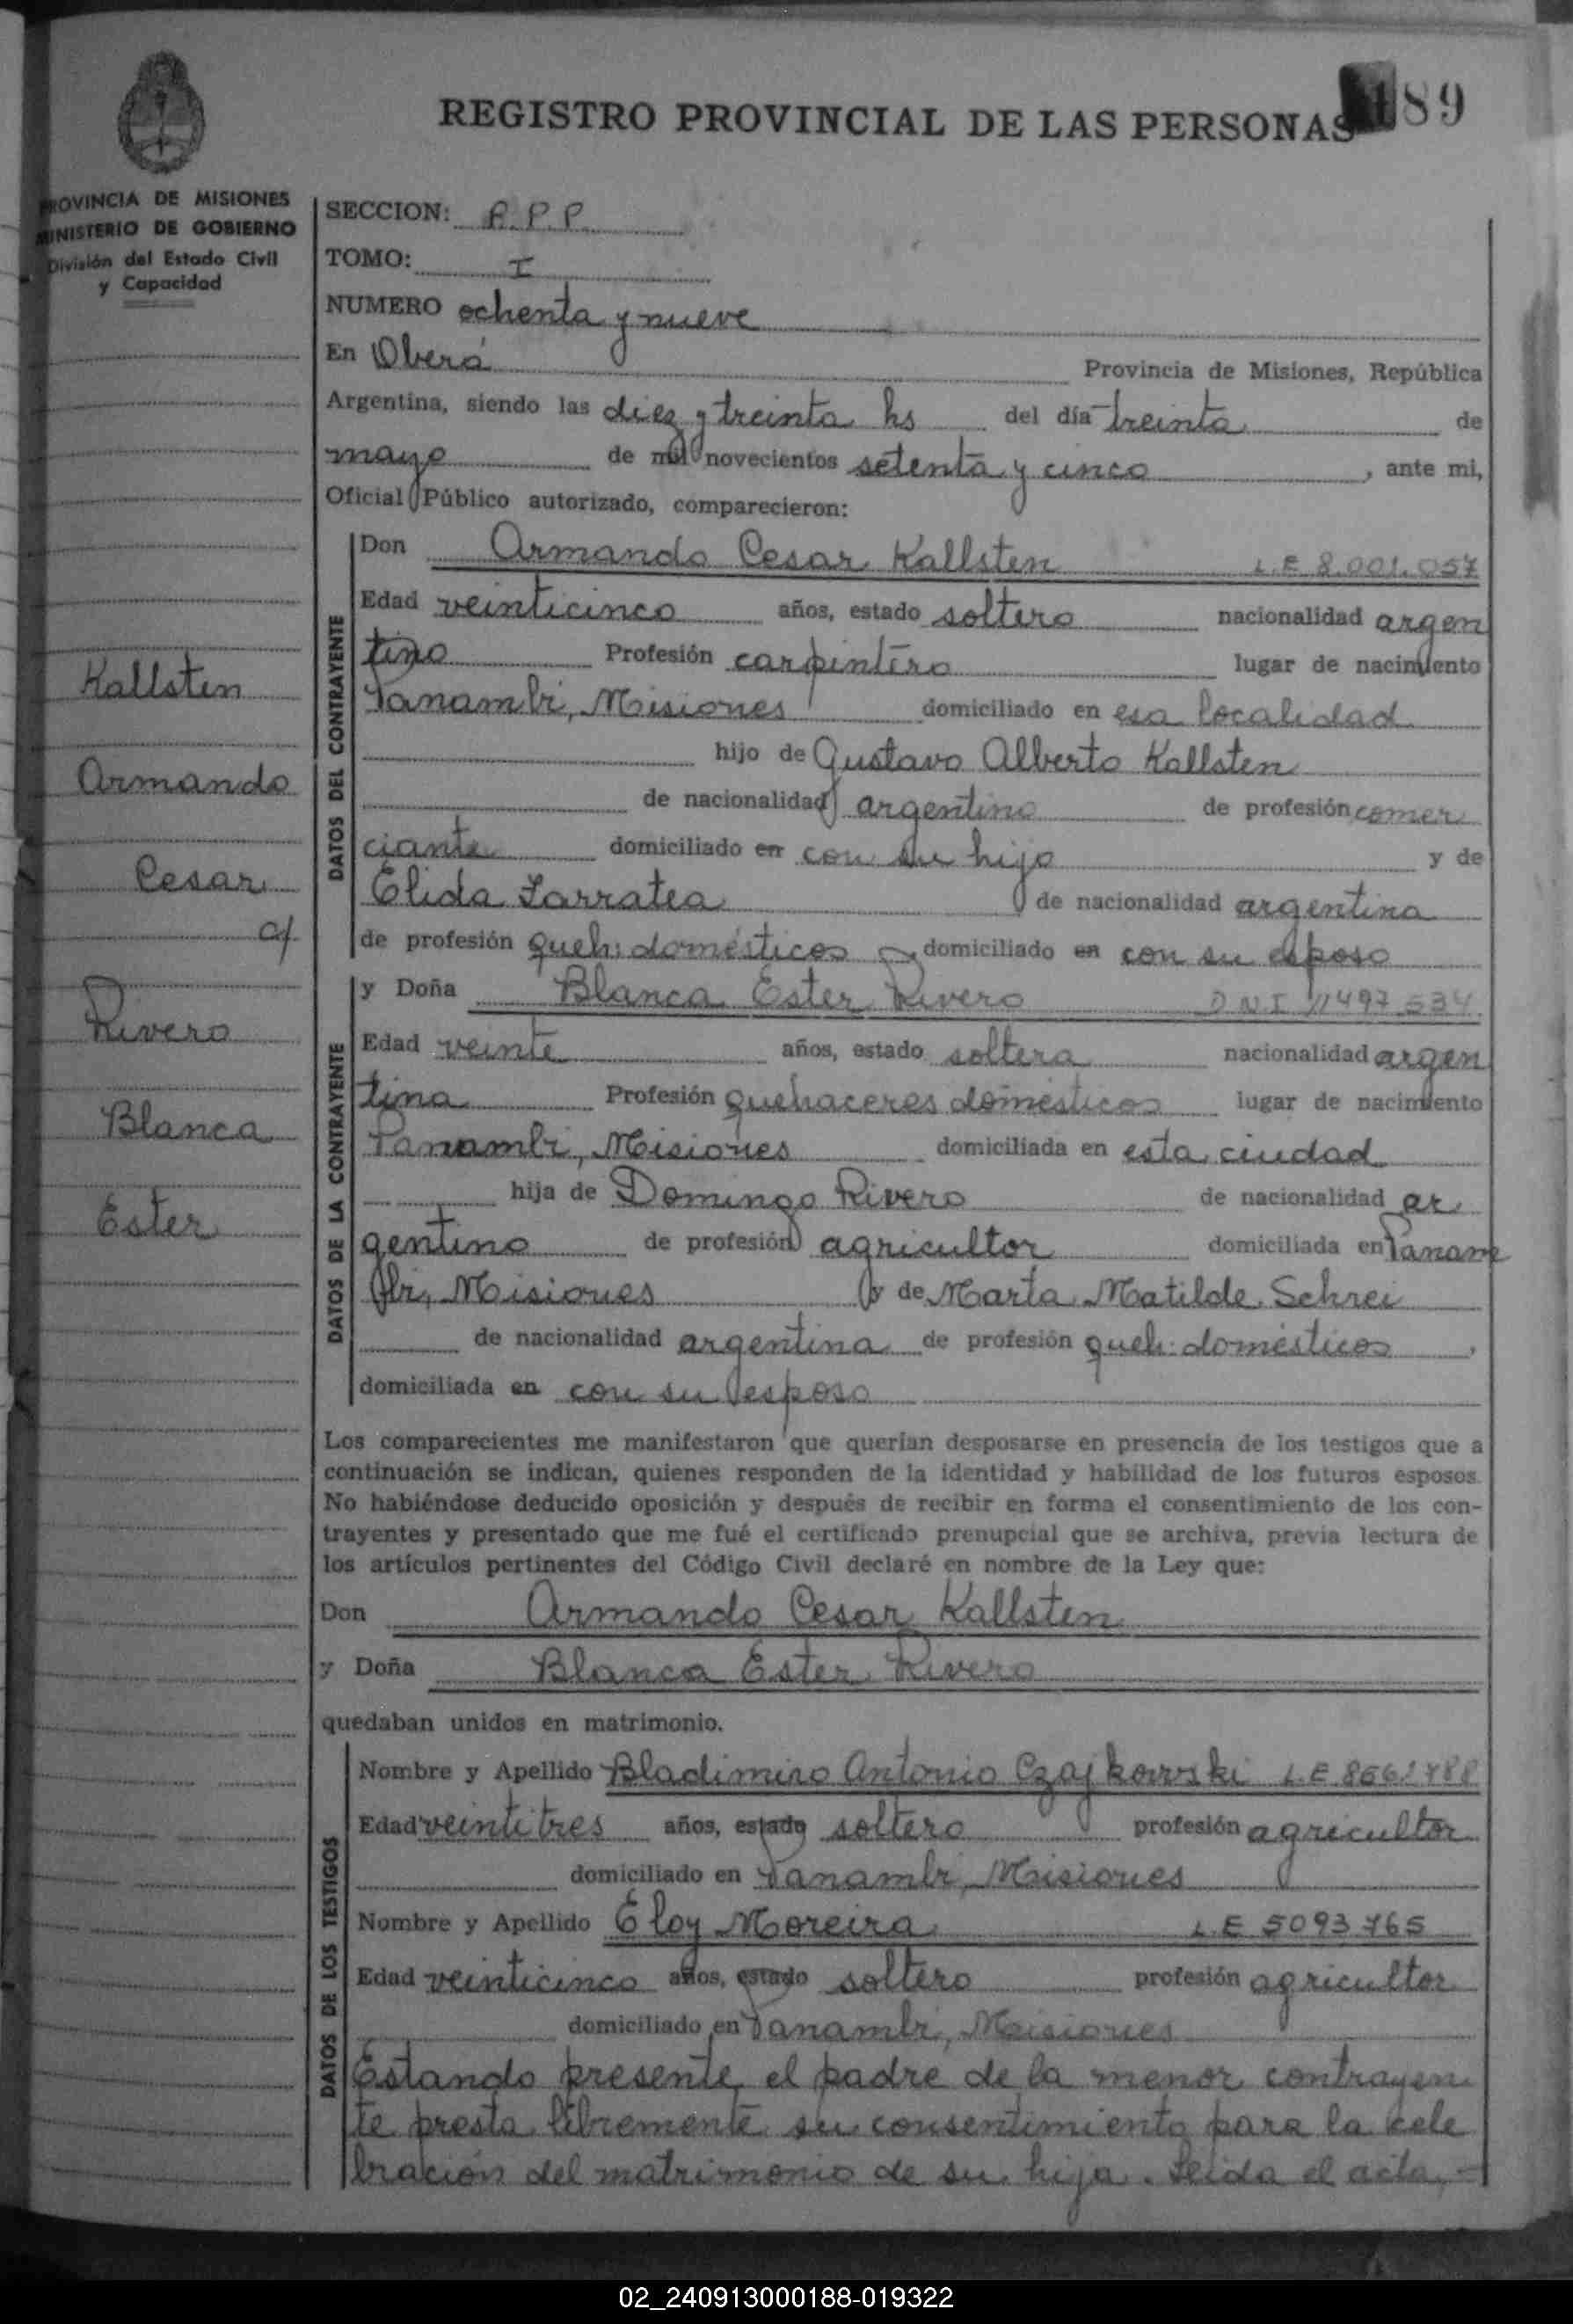 189
REGISTRO PROVINCIAL DE LAS PERSONAS
PROVINCIA DE MISIONES
MINISTERIO DE GOBIERNO
División del Estado Civil
y Capacidad
Kallsten
Armando
Cesar
c/
Rivero
Blanca
Ester
SECCION: P.P.P.
TOMO: I
NUMERO ochenta y nueve
En Oberá Provincia de Misiones, República
Argentina, siendo las diez y treinta hs del día treinta de
mayo de mil novecientos setenta y cinco, ante mi,
Oficial Público autorizado, comparecieron:
DATOS DEL CONTRAYENTE
Don Armando Cesar Kallsten L.E 8.001.057
Edad veinticinco años, estado soltero nacionalidad argen
tino Profesión carpintero lugar de nacimiento
Panambi, Misiones domiciliado en esa localidad
hijo de Gustavo Alberto Kallsten
de nacionalidad argentino de profesión comer
ciante domiciliado en con su hijo y de
Elida Larratea de nacionalidad argentina
de profesión queh: domésticos domiciliado en con su esposo
DATOS DE LA CONTRAYENTE
y Doña Blanca Ester Rivero D.N.I 11497534
Edad veinte años, estado soltera nacionalidad argen
tina Profesión quehaceres domésticos lugar de nacimiento
Panambi, Misiones domiciliada en esta ciudad
hija de Domingo Rivero de nacionalidad ar
gentino de profesión agricultor domiciliada en Panam
bi, Misiones y de Marta Matilde Schrei
de nacionalidad argentina de profesión queh: domésticos,
domiciliada en con su esposo
Los comparecientes me manifestaron que querían desposarse en presencia de los testigos que a
continuación se indican, quienes responden de la identidad y habilidad de los futuros esposos.
No habiéndose deducido oposición y después de recibir en forma el consentimiento de los con-
trayentes y presentado que me fué el certificado prenupcial que se archiva, previa lectura de
los artículos pertinentes del Código Civil declaré en nombre de la Ley que:
Don Armando Cesar Kallsten
y Doña Blanca Ester Rivero
quedaban unidos en matrimonio.
DATOS DE LOS TESTIGOS
Nombre y Apellido Bladimiro Antonio Czajkowski L.E
Edad veintitres años, estado soltero profesión agricultor
domiciliado en Panambi, Misiones
Nombre y Apellido Eloy Moreira L.E 5093765
Edad veinticinco años, estado soltero profesión agricultor
domiciliado en Panambi, Misiones
Estando presente el padre de la menor contrayen
te presta libremente su consentimiento para la cele
bración del matrimonio de su hija. Leida el acta, -
02_240913000188-019322